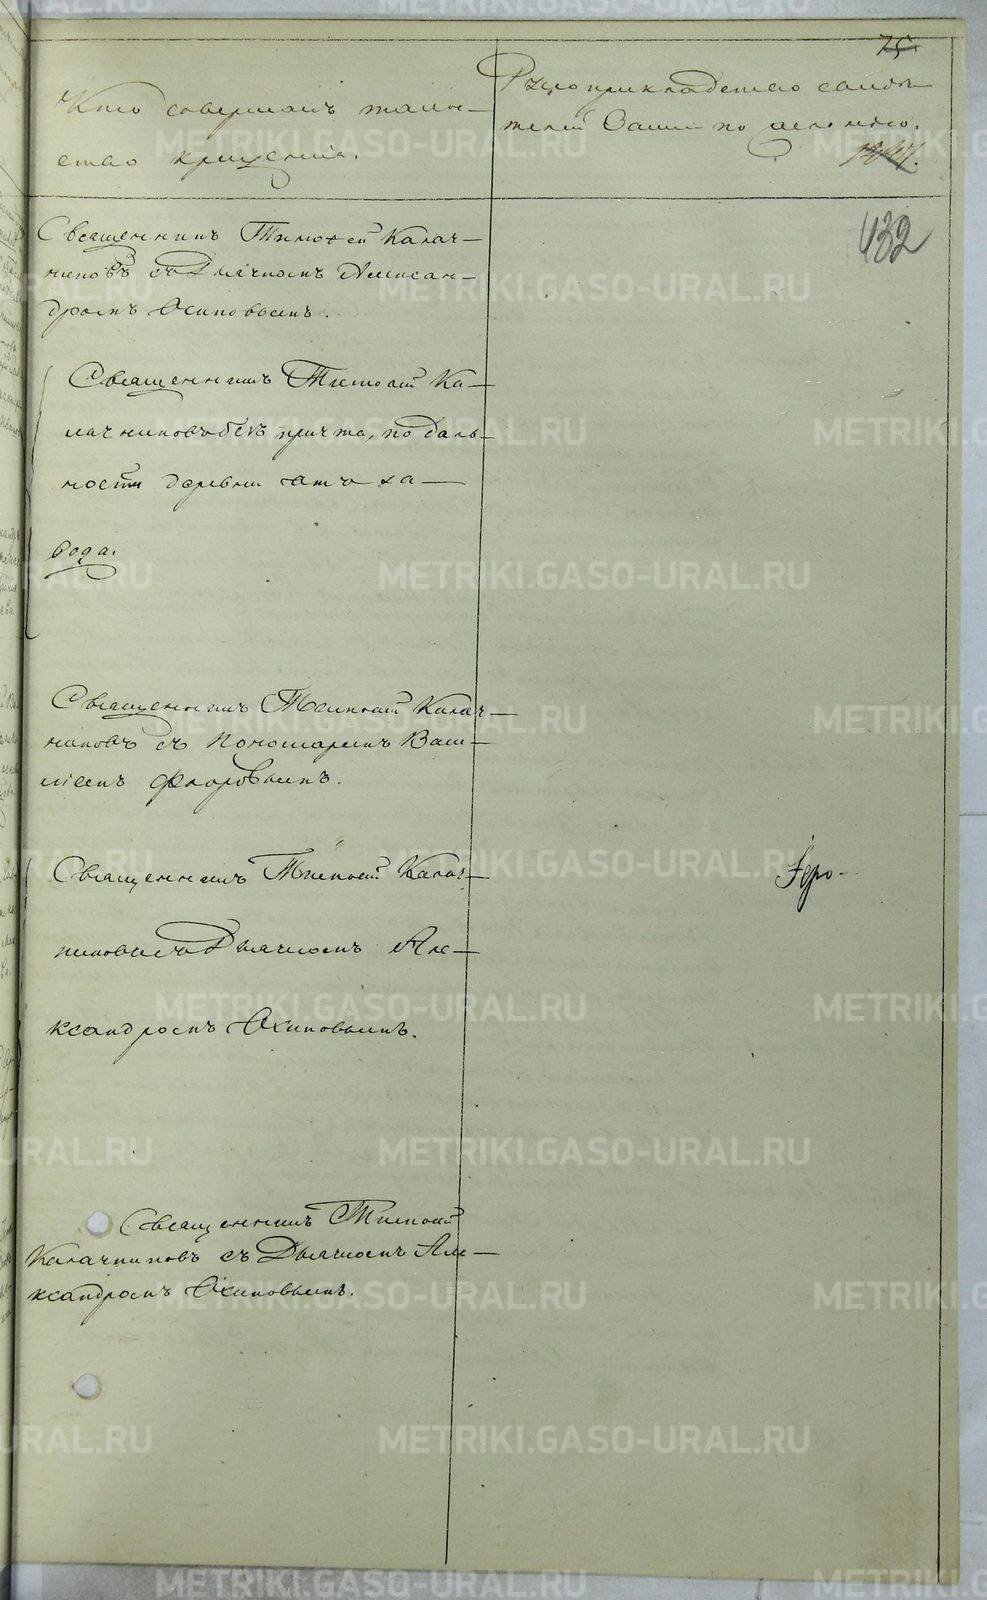 75.
Кто совершалъ таин-
ство крещенія.
Рукоприкладство свидѣ-
телей записи по желанію.
432
Священникъ Тимофей Калач-
никовъ съ Дьячкомъ Алексан-
дромъ Осиповымъ.
Священникъ Тимофей Ка-
лачниковъ безъ причта, по даль-
ности деревни отъ за-
вода.
Священникъ Тимофей Калач-
никовъ съ Пономаремъ Васи-
ліемъ Флоровымъ.
Священникъ Тимофей Калач-
никовъ съ Дьячкомъ Але-
ксандромъ Осиповымъ.
Священникъ Тимофей
Калачниковъ съ Дьячкомъ Але-
ксандромъ Осиповымъ.
METRIKI.GASO-URAL.RU